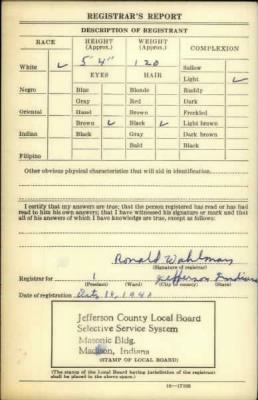 REGISTRAR'S REPORT
DESCRIPTION OF REGISTRANT
RACE HEIGHT (Approx.) WEIGHT (Approx.) COMPLEXION
White ✓ 5' 4" 120 Sallow
EYES HAIR Light ✓
Negro Blue Blonde Ruddy
Gray Red Dark
Oriental Hazel Brown Freckled
Brown ✓ Black ✓ Light brown
Indian Black Gray Dark brown
Bald Black
Filipino
Other obvious physical characteristics that will aid in identification
I certify that my answers are true; that the person registered has read or has had
read to him his own answers; that I have witnessed his signature or mark and that
all of his answers of which I have knowledge are true, except as follows:
Ronald Wahlman
(Signature of registrar)
Registrar for 1 Jefferson Indiana
(Precinct) (Ward) (City or county) (State)
Date of registration 16, 1940
Jefferson County Local Board
Selective Service System
Masonic Bldg.
Madison, Indiana
(STAMP OF LOCAL BOARD)
(The stamp of the Local Board having jurisdiction of the registrant
shall be placed in the above space.)